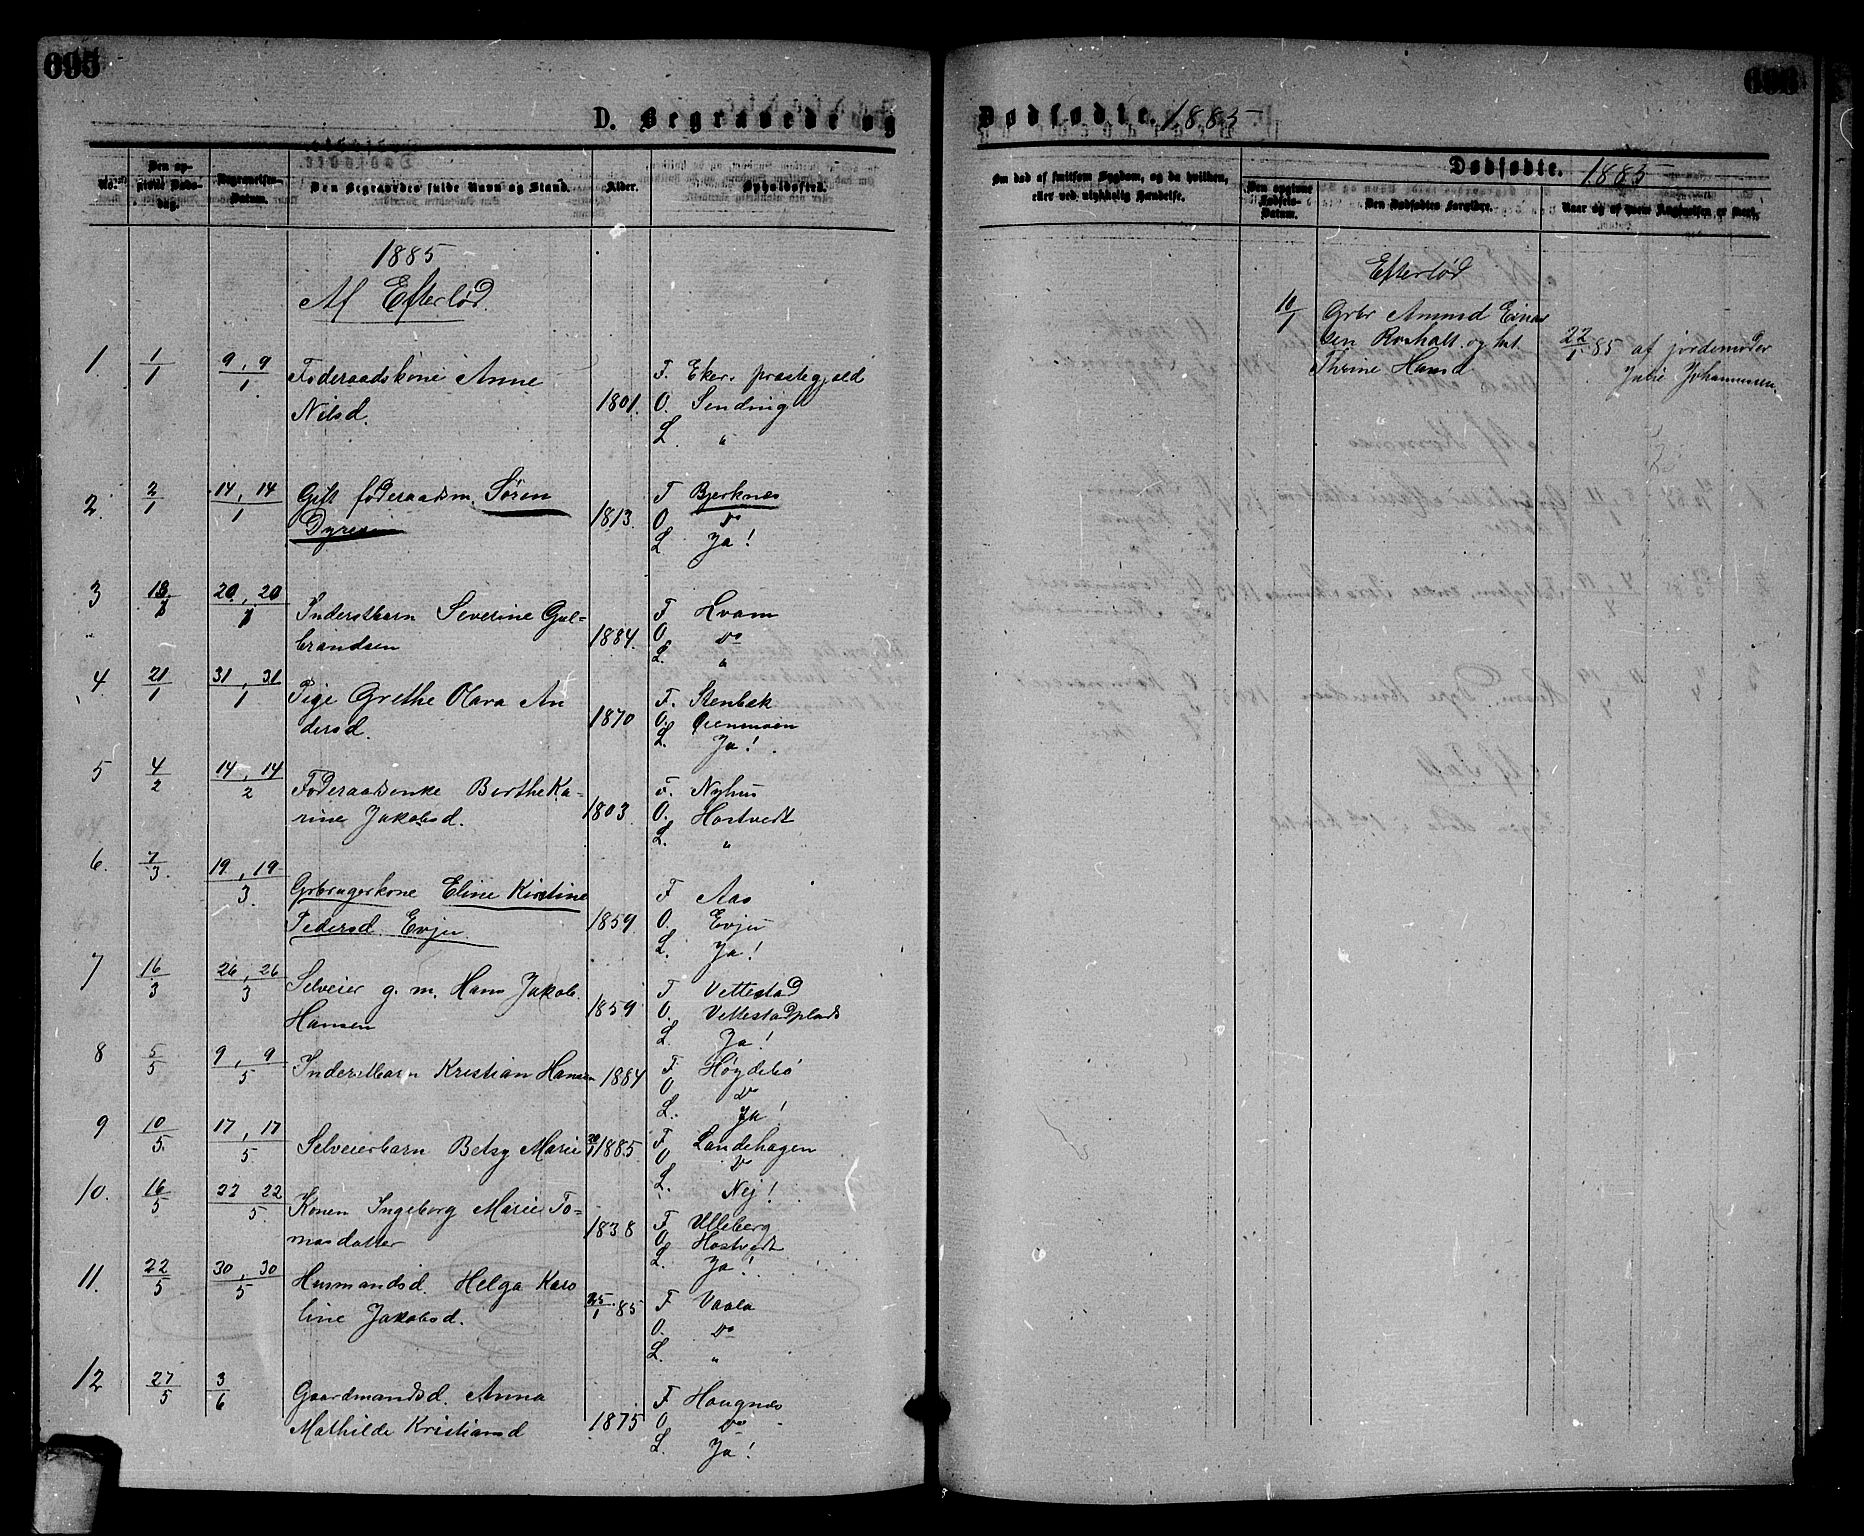 695
D. Begravede og
No.
Den opgivne Dødsdag.
Begravelses-Datum.
Den Begravedes fulde Navn og Stand.
Alder.
Opholdssted.
1885
Af Efterlød
1 1/1 9, 9/1 Føderaadskone Anne 1801. F. Eker. præstegjeld
Nilsd. O. Sending
L. "
2. 2/1 14, 14/1 Gift føderaadsm. Søren 1813. F Bjerknæs
Dyresen O do
L Ja!
3 20, 20 Inderstbarn Severine Gul- 1884. F Hvam
brandsen O. do
L. "
4. 21/1 31, 31/1 Pige Grethe Olava An 1870 F. Stenbek
dersd. O.
L. Ja!
5 4/2 14, 14/2 Føderaadsenke Berthe Ka- 1803 F. Nyhus
rine Jakobsd. O. Hostvedt
L. "
6. 7/3. 19, 19/3. Grbrugerkone Eline Kirstine 1859. F Aas
Pedersd. Evju. O. Evju
L. Ja!
7 16/3 26, 26/3 Selveier g. m. Hans Jakob 1859 F Vettestad
Hansen O. Vettestadplads
L. Ja!
8 5/5 9, 9/5 Inderstbarn Kristian Hansen 1884 F Høydebø
O do
L. Ja!
9 10/5. 17, 17/5. Selveierbarn Betsy Marie 1885. F Landehagen
O do
L. Nej!
10. 16/5 22 22/5. Konen Ingeborg Marie To- 1838 F Ulleberg
masdatter O. Hostvedt
L. Ja!
11. 22/5 30, 30/5 Husmandsd. Helga Karo 25/1 85 F Vaala
line Jakobsd. O. do
L. "
12 27/5 3/6 Gaardmandsd. Anna 1875 F Haugnæs
Mathilde Kristiansd O. do
L. Ja!
696
Dødfødte. 1885
Om død af smitsom Sygdom, og da hvilken,
eller ved ulykkelig Hændelse.
Dødfødte. 1885
Den opgivne Fødsels-Datum.
Den Dødfødtes Forældre.
Naar og af hvem Angivelsen er skeet.
Efterlød
Grbr Amund Einar
sen Roshalt og hst.
Thrine Hansd
22/1 85 af jordemoder
Julie Johannesen